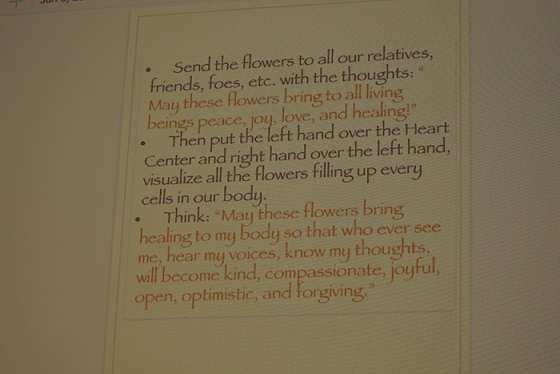 • Send the flowers to all our relatives,
friends, foes, etc. with the thoughts: "
May these flowers bring to all living
beings peace, joy, love, and healing!"
• Then put the left hand over the Heart
Center and right hand over the left hand,
visualize all the flowers filling up every
cells in our body.
• Think: "May these flowers bring
healing to my body so that who ever see
me, hear my voices, know my thoughts,
will become kind, compassionate, joyful,
open, optimistic, and forgiving."